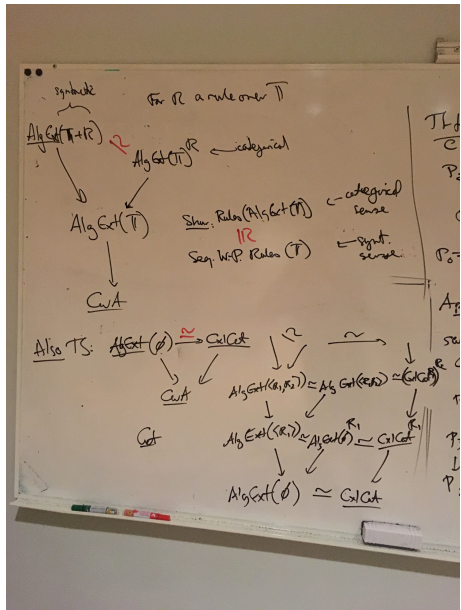 syntactic
For R a rule over 𝕋
AlgExt(𝕋+R) ≅ AlgExt(𝕋)^R ← categorical
AlgExt(𝕋)
CwA
Rules(AlgExt(𝕋)) ← categorical sense
≅
Seq. W-P. Rules (𝕋) ← synt. sense
Also TS: AlgExt(∅) ≃ CxlCat
CwA
AlgExt(⟨R₁,R₂⟩) ≃ AlgExt(⟨R₁⟩)^R₂ ≃ (CxlCat^R₁)^R₂
AlgExt(⟨R₁⟩) ≃ AlgExt(∅)^R₁ ≃ CxlCat^R₁
AlgExt(∅) ≃ CxlCat